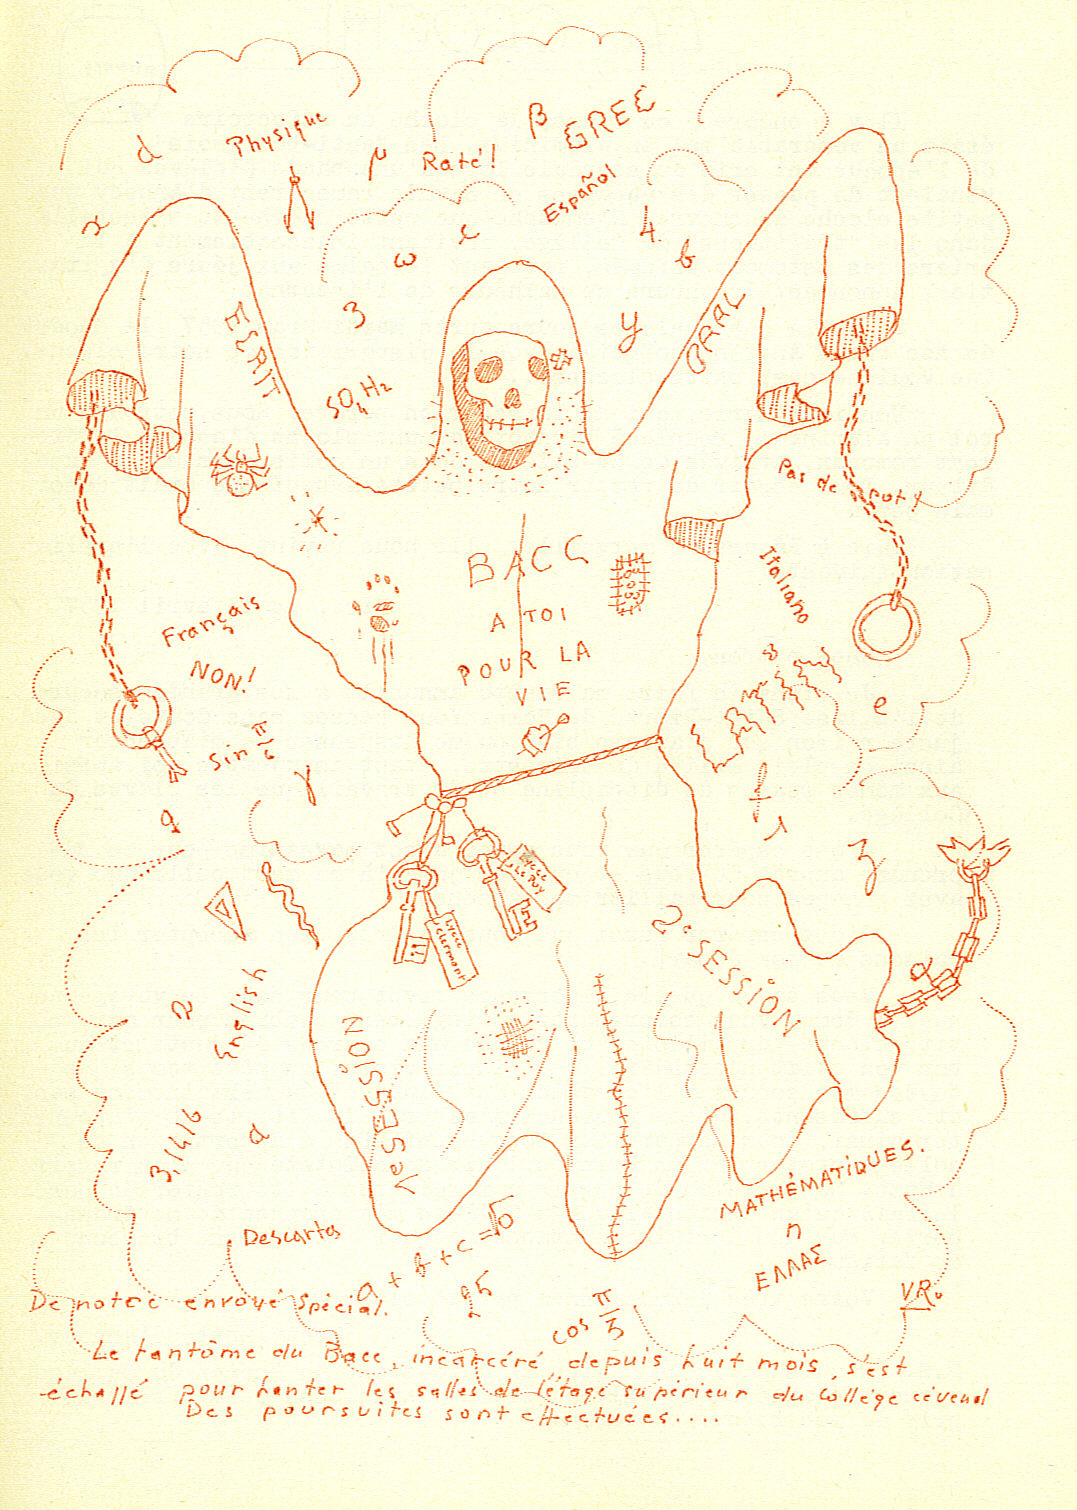 d
Physique
μ
Raté!
β
GREC
Español
x
ω
ε
4
b
3
y
ECRIT
ORAL
SO₄H₂
Pas de pot!
BACC
A TOI
POUR LA
VIE
Italiano
Français
NON!
Sin π/6
γ
e
f
3
Lycée
Le PUY
Lycée
Clermont
2e SESSION
SESSION
English
2
a
3,1416
Descartes
a + b + c = √5
25
cos π/3
MATHÉMATIQUES.
n
ΕΛΛΑΣ
V.R.
De notre envoyé Spécial.
Le fantôme du Bacc, incarcéré depuis huit mois, s'est
échappé pour hanter les salles de l'étage supérieur du Collège cévenol
Des poursuites sont effectuées....